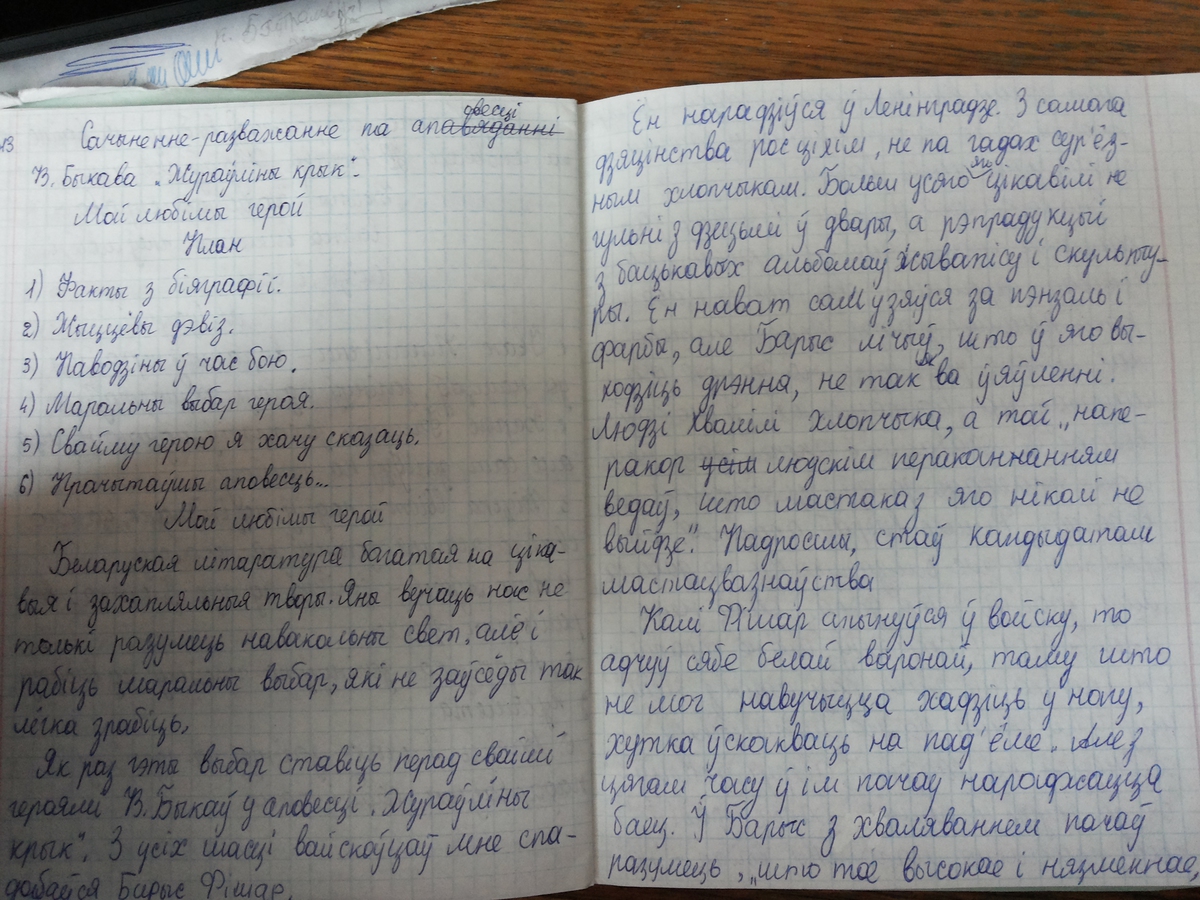 13
Сачыненне-разважанне па ап̶а̶в̶я̶д̶а̶н̶н̶і̶ овесці
В. Быкава „Жураўліны крык”.
Мой любімы герой
План
1) Факты з біяграфіі.
2) Жыццёвы дэвіз.
3) Паводзіны ў час бою.
4) Маральны выбар героя.
5) Свайму герою я хачу сказаць.
6) Прачытаўшы аповесць...
Мой любімы герой
Беларуская літаратура багатая на ціка-
выя і захапляльныя творы. Яны вучаць нас не
толькі разумець навакольны свет, але і
рабіць маральны выбар, які не заўсёды так
лёгка зрабіць.
Як раз гэты выбар ставіць перад сваімі
героямі В. Быкаў у аповесці „Жураўліны
крык”. З усіх шасці вайскоўцаў мне спа-
дабаўся Барыс Фішар.
Ён нарадзіўся ў Ленінградзе. З самага
дзяцінства рос ціхім, не па гадах сур'ёз-
ным хлопчыкам. Больш усяго яго цікавілі не
гульні з дзецьмі ў двары, а рэпрадукцыі
з бацькавых альбомаў жывапісу і скульпту-
ры. Ён нават сам узяўся за пэнзаль і
фарбы, але Барыс лічыў, што ў яго вы-
ходзіць дрэнна, не так як ва ўяўленні.
Людзі хвалілі хлопчыка, а той „напе-
ракор у̶с̶і̶м̶ людскім перакананням
ведаў, што мастака з яго ніколі не
выйдзе”. Падросшы, стаў кандыдатам
мастацвазнаўства
Калі Фішар апынуўся ў войску, то
адчуў сябе белай варонай, таму што
не мог навучыцца хадзіць у нагу,
хутка ўскокваць на пад'ёме. Але з
цягам часу ў ім пачаў нараджацца
баец. І Барыс з хваляваннем пачаў
разумець, „што тое высокае і нязменнае,